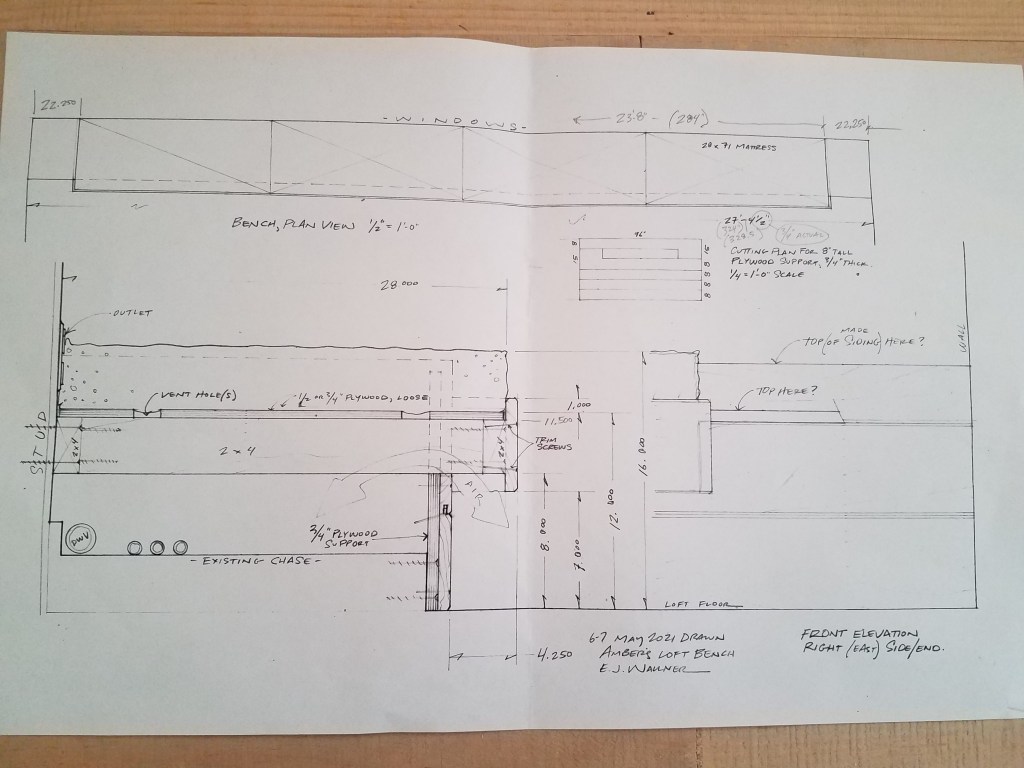 22.250
-WINDOWS-
23'-8" (284")
22.250
28 x 71 MATRESS
BENCH, PLAN VIEW 1/2" = 1'-0"
27'-4 1/2"
(329)
(328.5)
3/4" ACTUAL
96"
8
15
15
8
8
8
8
CUTTING PLAN FOR 8" TALL
PLYWOOD SUPPORT, 3/4" THICK.
1/4 = 1'-0" SCALE
28.000
OUTLET
VENT HOLE(S)
1/2 OR 3/4" PLYWOOD, LOOSE
STUD
2x4
2 x 4
2x4
1,000
11,500
TRIM
SCREWS
AIR
3/4" PLYWOOD
SUPPORT
DWV
-EXISTING CHASE-
8.000
7.000
12.400
16.000
4.250
MADE
TOP (OF SIDING) HERE?
TOP HERE?
WALL
LOFT FLOOR
6-7 MAY 2021 DRAWN
AMBER'S LOFT BENCH
E.J. WALLNER
FRONT ELEVATION
RIGHT (EAST) SIDE/END.